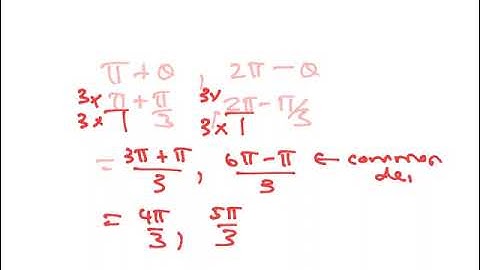 π + θ , 2π − θ
3× π/3×1 + π/3 , 3× 2π/3×1 − π/3
= (3π + π)/3 , (6π − π)/3 ← common de,
= 4π/3 , 5π/3